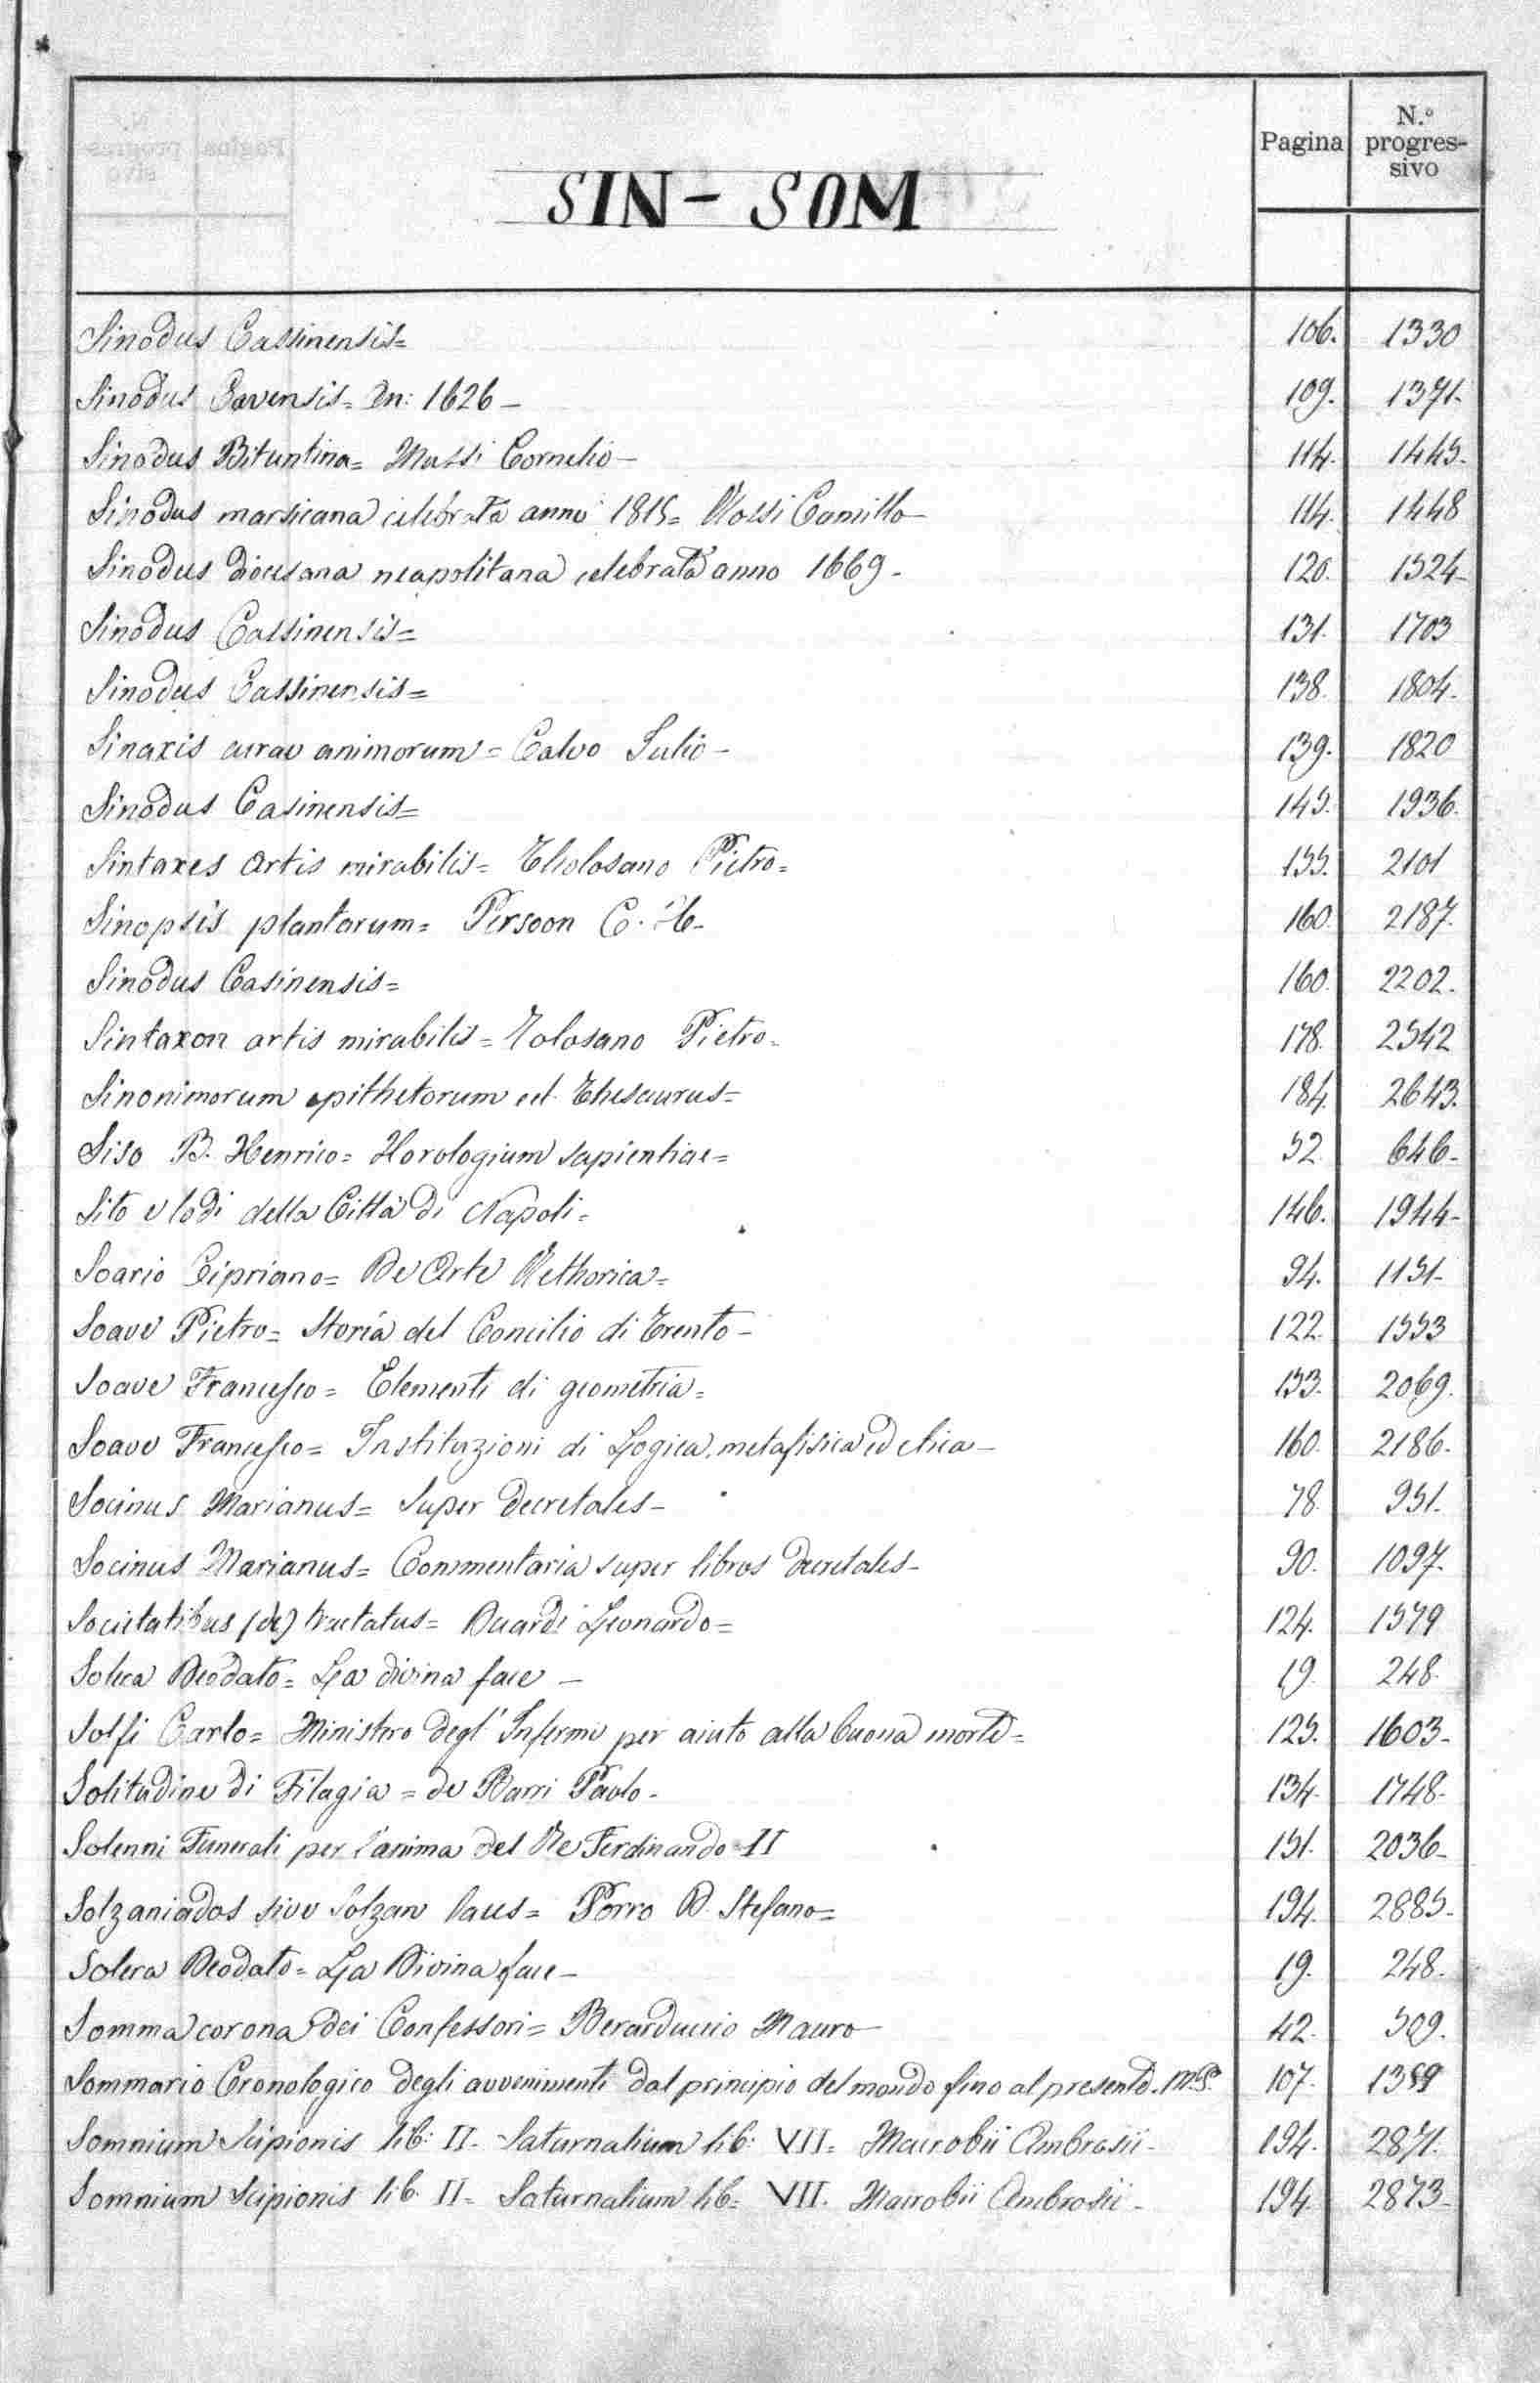 Pagina
N.º progres-
sivo
SIN - SOM
Sinodus Cassinensis= 106. 1330
Sinodus Cavensis= Dn: 1626 - 109. 1371.
Sinodus Bituntina= Mussi Cornelio - 114. 1445.
Sinodus marsicana celebrata anno 1815= Rossi Camillo - 114. 1448
Sinodus diocesana neapolitana celebrata anno 1669 - 120. 1524-
Sinodus Cassinensis= 131. 1703
Sinodus Cassinensis= 138. 1804.
Sinaxis curae animorum= Calvo Julio - 139. 1820
Sinodus Casinensis= 145. 1936.
Sintaxes artis mirabilis= Tholosano Pietro= 155. 2101
Sinopsis plantarum= Persoon C. H- 160. 2187.
Sinodus Casinensis= 160. 2202.
Sintaxon artis mirabilis= Tolosano Pietro- 178. 2542
Sinonimorum epithetorum et Thesaurus= 184. 2643.
Siso B. Henrico= Horologium sapientiae= 52. 646-
Sito e lodi della Città di Napoli= 146. 1944-
Soario Cipriano= De Arte Rethorica= 94. 1151-
Soave Pietro= Storia del Concilio di Trento - 122. 1553
Soave Francesco= Elementi di geometria= 153. 2069.
Soave Francesco= Instituzioni di Logica, metafisica ed etica - 160. 2186.
Socinus Marianus= Super decretales - 78. 951.
Socinus Marianus= Commentaria super libros decretales - 90. 1097.
Societatibus (de) tractatus= Duardi Leonardo= 124. 1579
Solera Deodato= La divina face - 19. 248.
Solfi Carlo= Ministero degl' Infermi per aiuto alla buona morte= 125. 1603-
Solitudine di Filagia= de Barri Paolo- 134. 1748.
Solenni Funerali per l'anima del Re Ferdinando II 151. 2036-
Solzaniados sive Solzan laus= Porro D. Stefano= 194. 2885-
Solera Deodato= La Divina face - 19. 248.
Somma corona dei Confessori= Berarduccio Mauro - 42. 509.
Sommario Cronologico degli avvenimenti dal principio del mondo fino al presente. M.S. 107. 1359
Somnium Scipionis lib: II- Saturnalium lib: VII= Macrobii Ambrosii - 194. 2871.
Somnium Scipionis lib. II= Saturnalium lib= VII. Macrobii Ambrosii - 194. 2873-